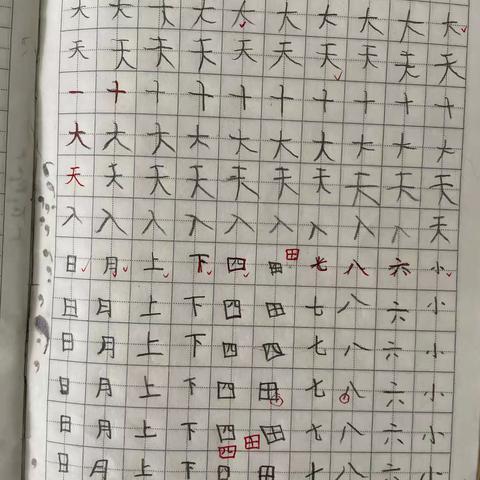 大大大大大大大大大大
天天天天天天天天天天
一十十十十十十十十十
大大大大大大大大大大
天天天天天天天天天天
入入入入入入入入入天
日月上下四田田七八六小
日月上下四田七八六小
日月上下四田七八六小
日月上下四田七八六小
日月上下四田田七八六小
日月上下四四田七八六小